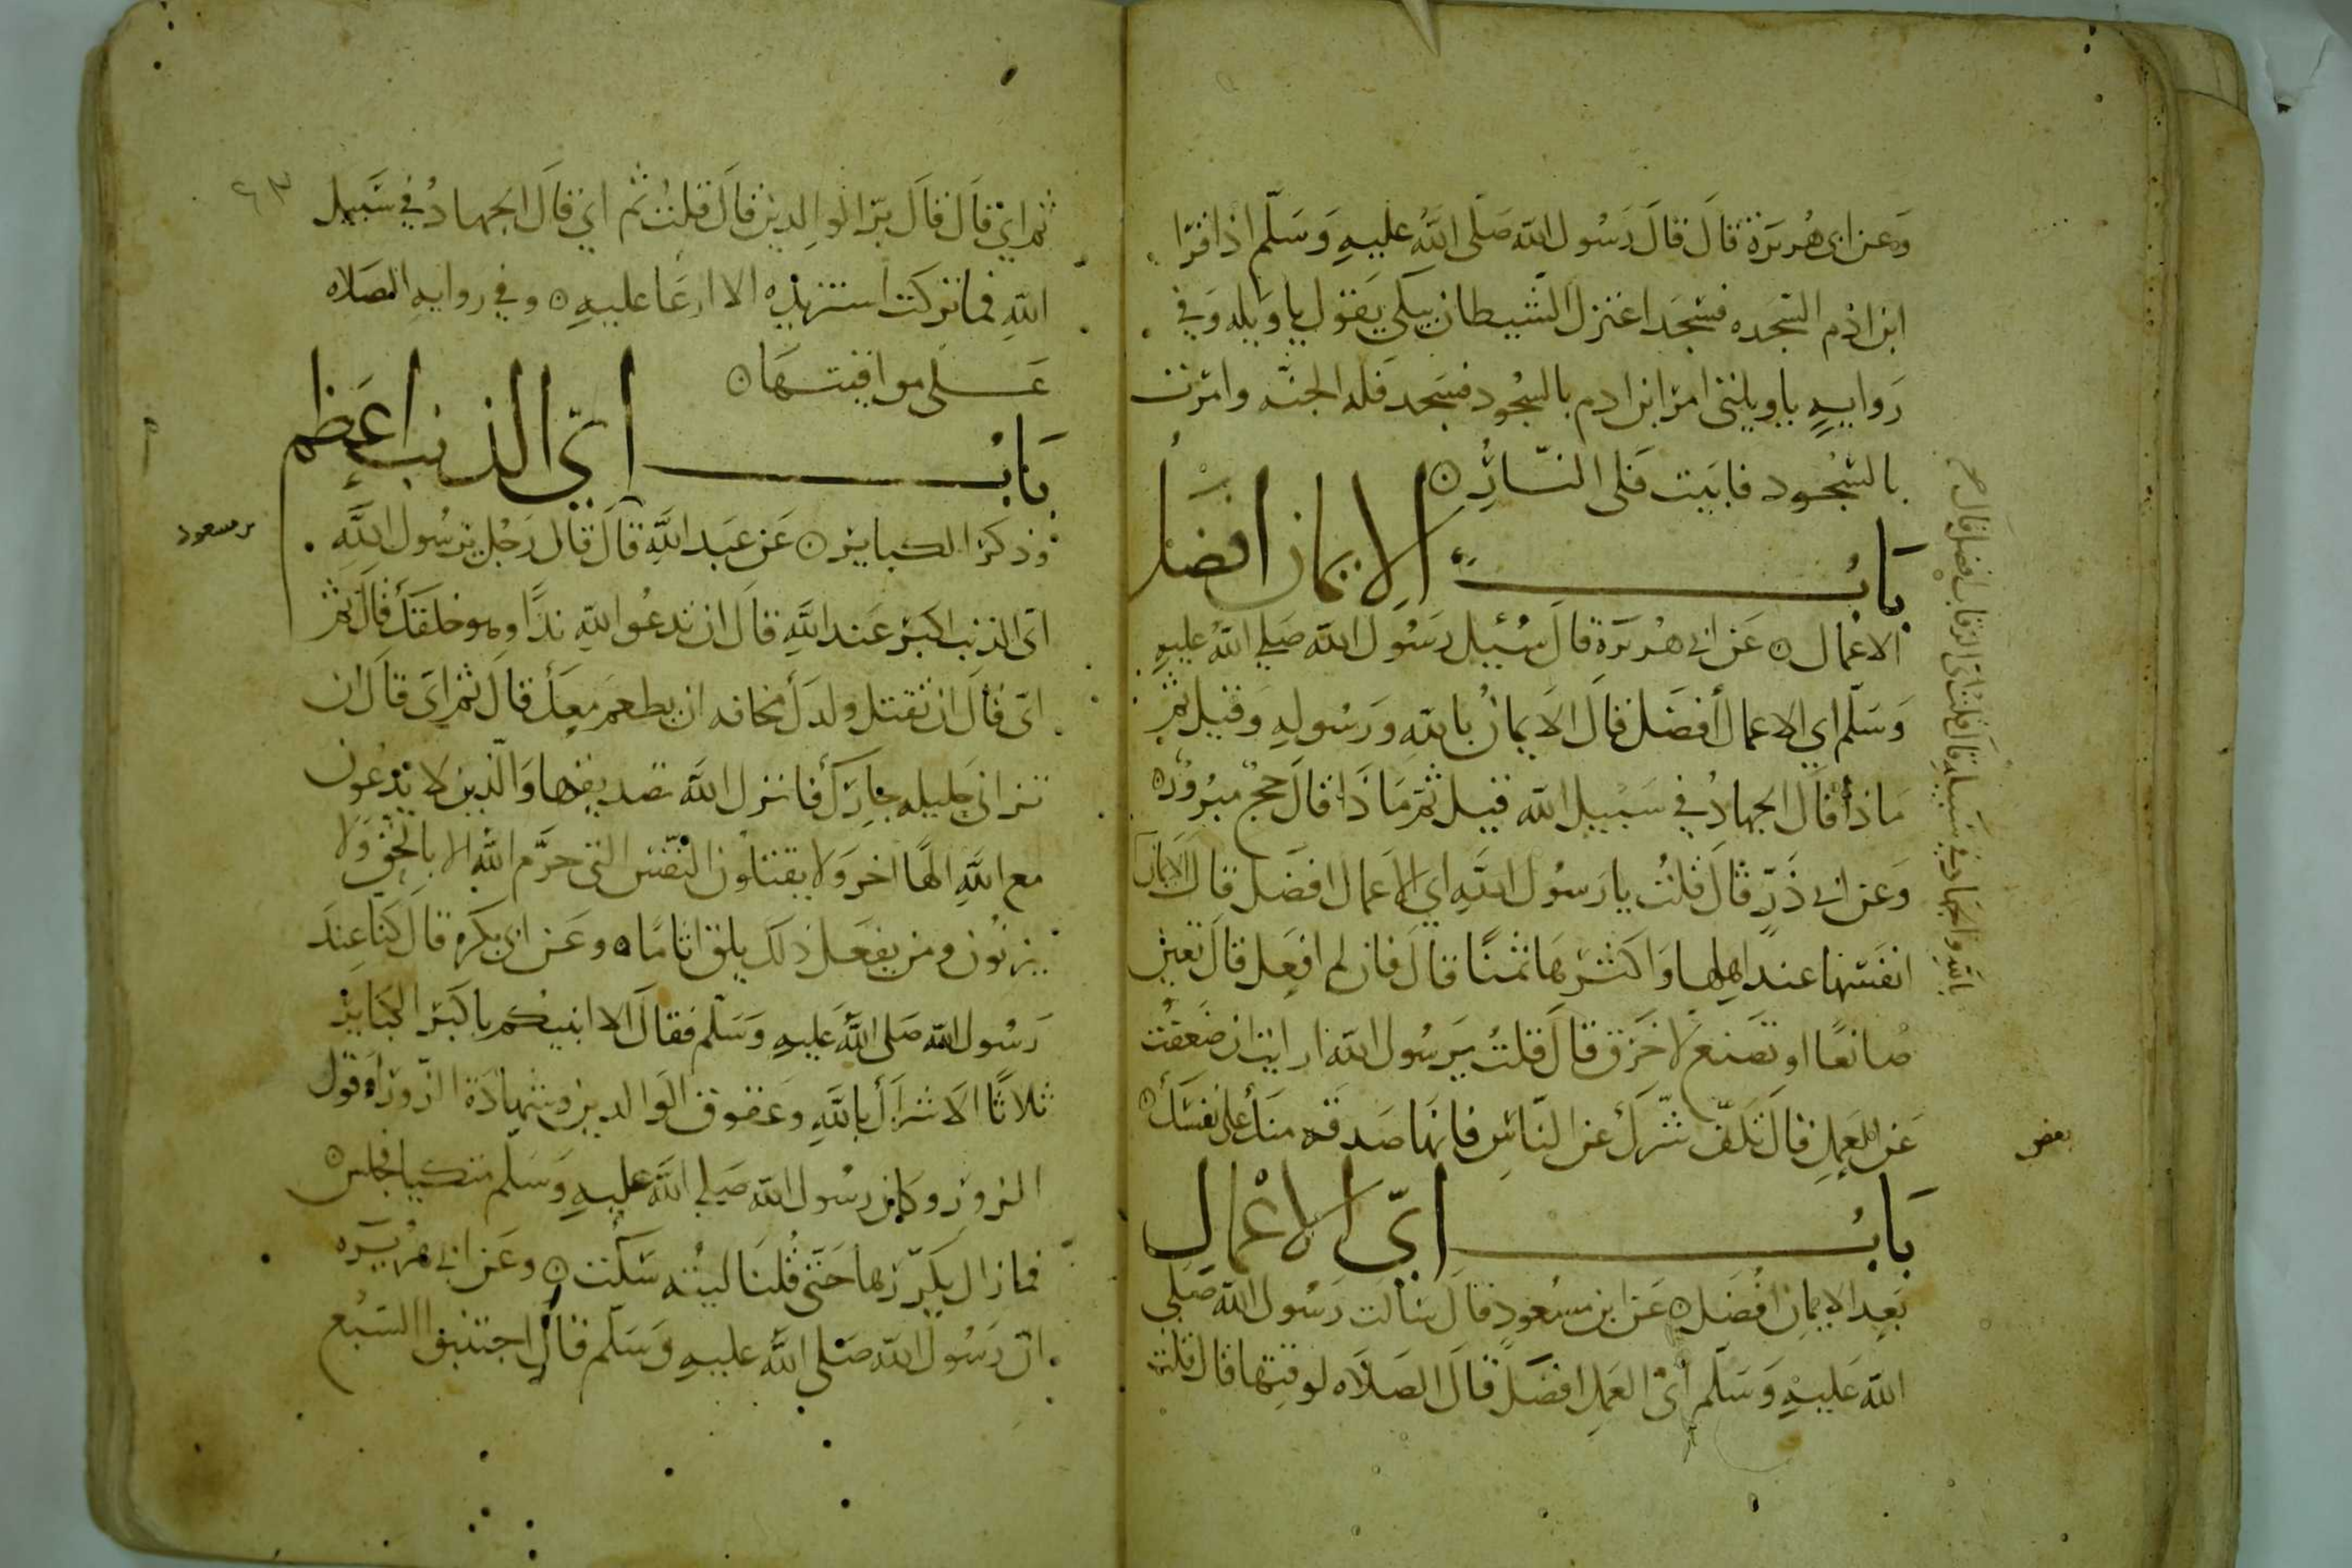 وعن ابي هريرة قال قال رسول الله صلى الله عليه وسلم اذا قرا
ابن ادم السجده فسجد اعتزل الشيطان يبكي يقول ياويله وفي
رواية ياويلتي امر ابن ادم بالسجود فسجد فله الجنه وامرت
بالسجود فابيت فلي النار
باب الايمان افضل
الاعمال عن ابي هريرة قال سئيل رسول الله صلى الله عليه
وسلم اي الاعمال افضل قال الايمان بالله ورسوله وقيل ثم
ماذا قال الجهاد في سبيل الله قيل ثم ماذا قال حج مبرور
وعن ابي ذر قال قلت يا رسول الله اي الاعمال افضل قال الايمان
بالله والجهاد في سبيله قال قلت اي الرقاب افضل قال
انفسها عند اهلها واكثرها ثمنا قال فان لم افعل قال تعين
صانعا او تصنع لاخرق قال قلت يرسول الله ارايت ان ضعفت
عن العمل قال تكف شرك عن الناس فانها صدقه منك على نفسك
بعض
باب اي الاعمال
بعد الايمان افضل عن ابن مسعود قال سالت رسول الله صلى
الله عليه وسلم اي العمل افضل قال الصلاه لوقتها قال قلت
ثم اي قال قال بر الوالدين قال قلت ثم اي قال الجهاد في سبيل
الله فما تركت استزيده الا ارعا عليه وفي روايه الصلاه
على مواقيتها
باب اي الذنب اعظم
وذكر الكباير عن عبد الله قال قال رجل يرسول الله
بن مسعود
اي الذنب اكبر عند الله قال ان تدعو الله ندا وهو خلقك قال ثم
اي قال ان تقتل ولدك مخافه ان يطعم معك قال ثم اي قال ان
تزاني حليله جارك فانزل الله تصديقها والذين لا يدعون
مع الله الها اخر ولا يقتلون النفس التي حرم الله الا بالحق ولا
يزنون ومن يفعل ذلك يلق اثاما وعن ابي بكره قال كنا عند
رسول الله صلى الله عليه وسلم فقال الا انبيكم باكبر الكباير
ثلاثا الاشراك بالله وعقوق الوالدين وشهادة الزور او قول
الزور وكان رسول الله صلى الله عليه وسلم متكيا فجلس
فما زال يكررها حتى قلنا ليته سكت وعن ابي هريره
ان رسول الله صلى الله عليه وسلم قال اجتنبوا السبع